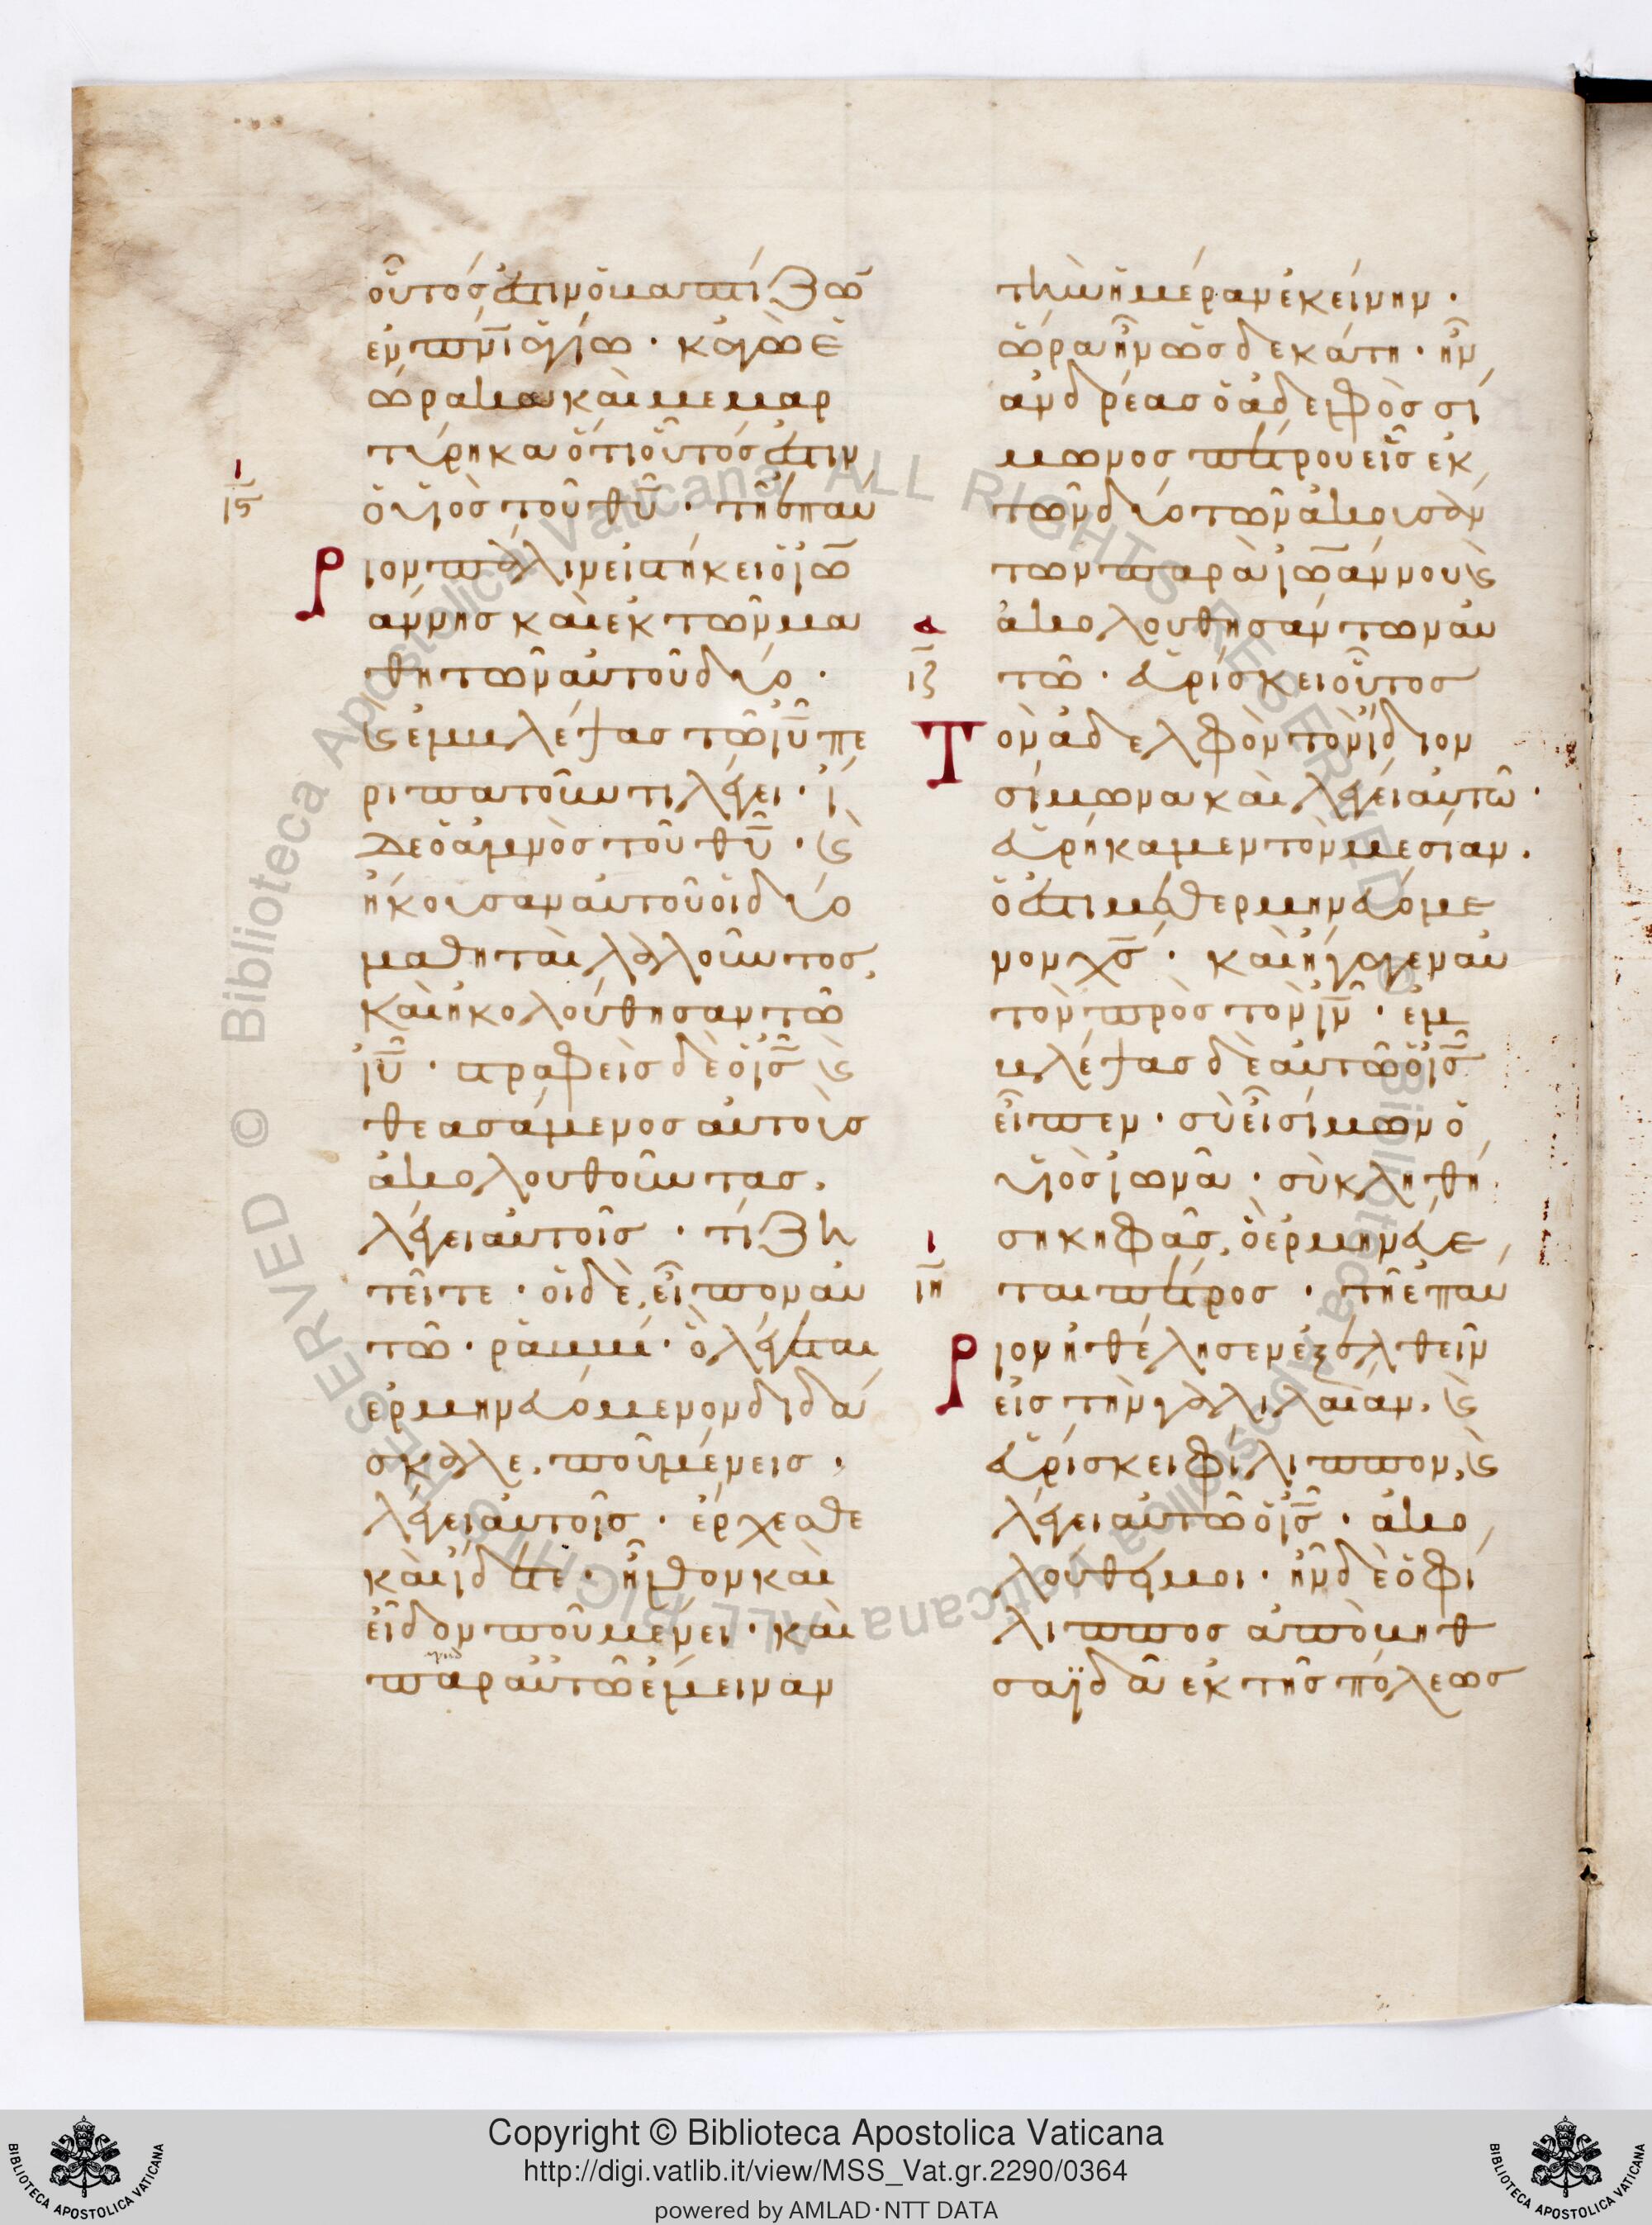 οὗτός ἐστιν ὁ βαπτίζω̄
ἐν πν̄ι ἁγίω · κἀγὼ ἑ
ώρακα καὶ μεμαρ
τύρηκα ὅτι οὗτός ἐστιν
ὁ υἱὸς τοῦ θῡ · τῆ ἐπαύ
ι
ιϛ
ριον πάλιν εἱστήκει ὁ ἰω̄
άννης καὶ ἐκ τῶν μα
θητῶν αὐτοῦ δύο ·
ϗ ἐμβλέψας τῶ ιῡ πε
ριπατοῦντι λέγει · ἴ
δε ὁ ἀμνὸς τοῦ θῡ · ϗ
ἤκουσαν αὐτοῦ οἱ δύο
μαθηταὶ λαλοῦντος,
καὶ ἠκολούθησαν τῶ
ιῡ · στραφεὶς δὲ ὁ ις̄ ϗ
θεασάμενος αὐτοὺς
ἀκολουθοῦντας.
λέγει αὐτοῖς · τί ζη
τεῖτε · οἱ δὲ, εἶπον αὐ
τῶ · ῥαββί · ὃ λέγεται
ἑρμηνευόμενον διδά
σκαλε, ποῦ μένεις ·
λέγει αὐτοῖς · ἔρχεσθε
καὶ ἴδετε · ἦλθον καὶ
εἶδον ποῦ μένει · καὶ
παρ αὐτῶ ἔμειναν
τὴν ἡμέραν ἐκείνην ·
ὥρα ἦν ὡς δεκάτη · ἦν
ἀνδρέας ὁ ἀδελφὸς σί
μωνος πέτρου εἷς ἐκ
τῶν δύο τῶν ἀκουσάν
των παρὰ ἰω̄άννου ϗ
ἀκολουθησάντων αὐ
α
ιζ
τῶ · εὑρίσκει οὗτος
Τὸν ἀδελφὸν τὸν ἴδιον
σίμωνα καὶ λέγει αὐτῶ ·
εὑρήκαμεν τὸν μεσίαν.
ὅ ἐστι μεθερμηνευόμε
νον χς̄ · καὶ ἤγαγεν αὐ
τὸν πρὸς τὸν ιν̄ · ἐμ
βλέψας δὲ αὐτῶ ὁ ις̄
εἶπεν · σὺ εἶ σίμων ὁ
υἱὸς ἰωνᾶ · σὺ κληθή
ση κηφᾶς, ὃ ἑρμηνεύε
ι
ιη
ται πέτρος · τῆ ἐπαύ
ριον ἠθέλησεν ἐξελθεῖν
εἰς τὴν γαλιλαίαν. ϗ
εὑρίσκει φίλιππον, ϗ
λέγει αὐτῶ ὁ ις̄ · ἀκο
λούθει μοι · ἦν δὲ ὁ φί
λιππος ἀπὸ βηθ
σαϊδὰ ἐκ τῆς πόλεως
Copyright © Biblioteca Apostolica Vaticana
http://digi.vatlib.it/view/MSS_Vat.gr.2290/0364
powered by AMLAD·NTT DATA
BIBLIOTECA APOSTOLICA VATICANA
BIBLIOTECA APOSTOLICA VATICANA